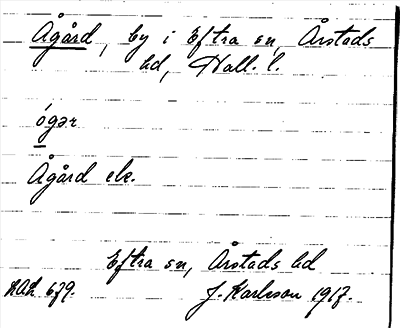 Ågård, by i Eftra sn, Årstads
hd, Hall. l.
ógər
Ågård ek.
Eftra sn, Årstads hd
NAH 679. J. Karlsson 1917.